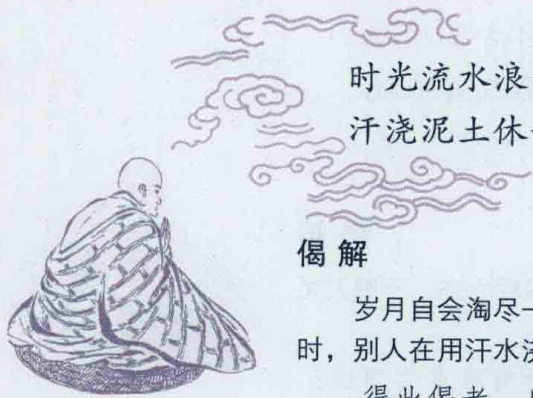 时光流水浪
汗浇泥土休
偈解
岁月自会淘尽一
时，别人在用汗水浇
得此偈者